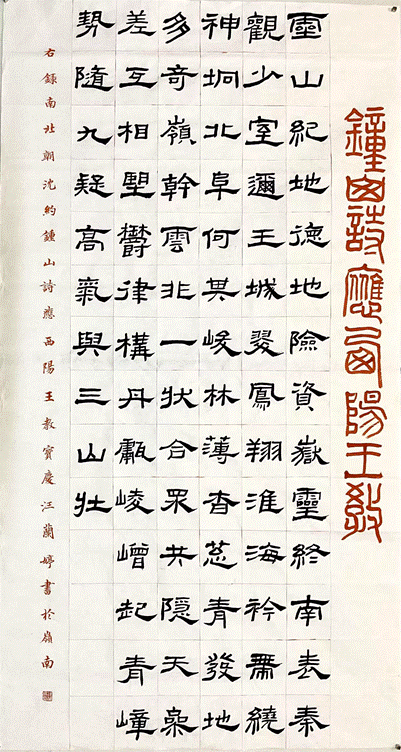 鐘山詩應西陽王教
靈山紀地德地險資嶽靈終南表秦
觀少室邇王城翠鳳翔淮海衿帶繞
神坰北阜何其峻林薄杳葱青發地
多奇嶺幹雲非一狀合眾共隱天參
差互相望鬱律構丹巘崚嶒起青嶂
勢隨九疑高氣與三山壯
右錄南北朝沈約鍾山詩應西陽王教寶慶汪蘭婷書於嶺南